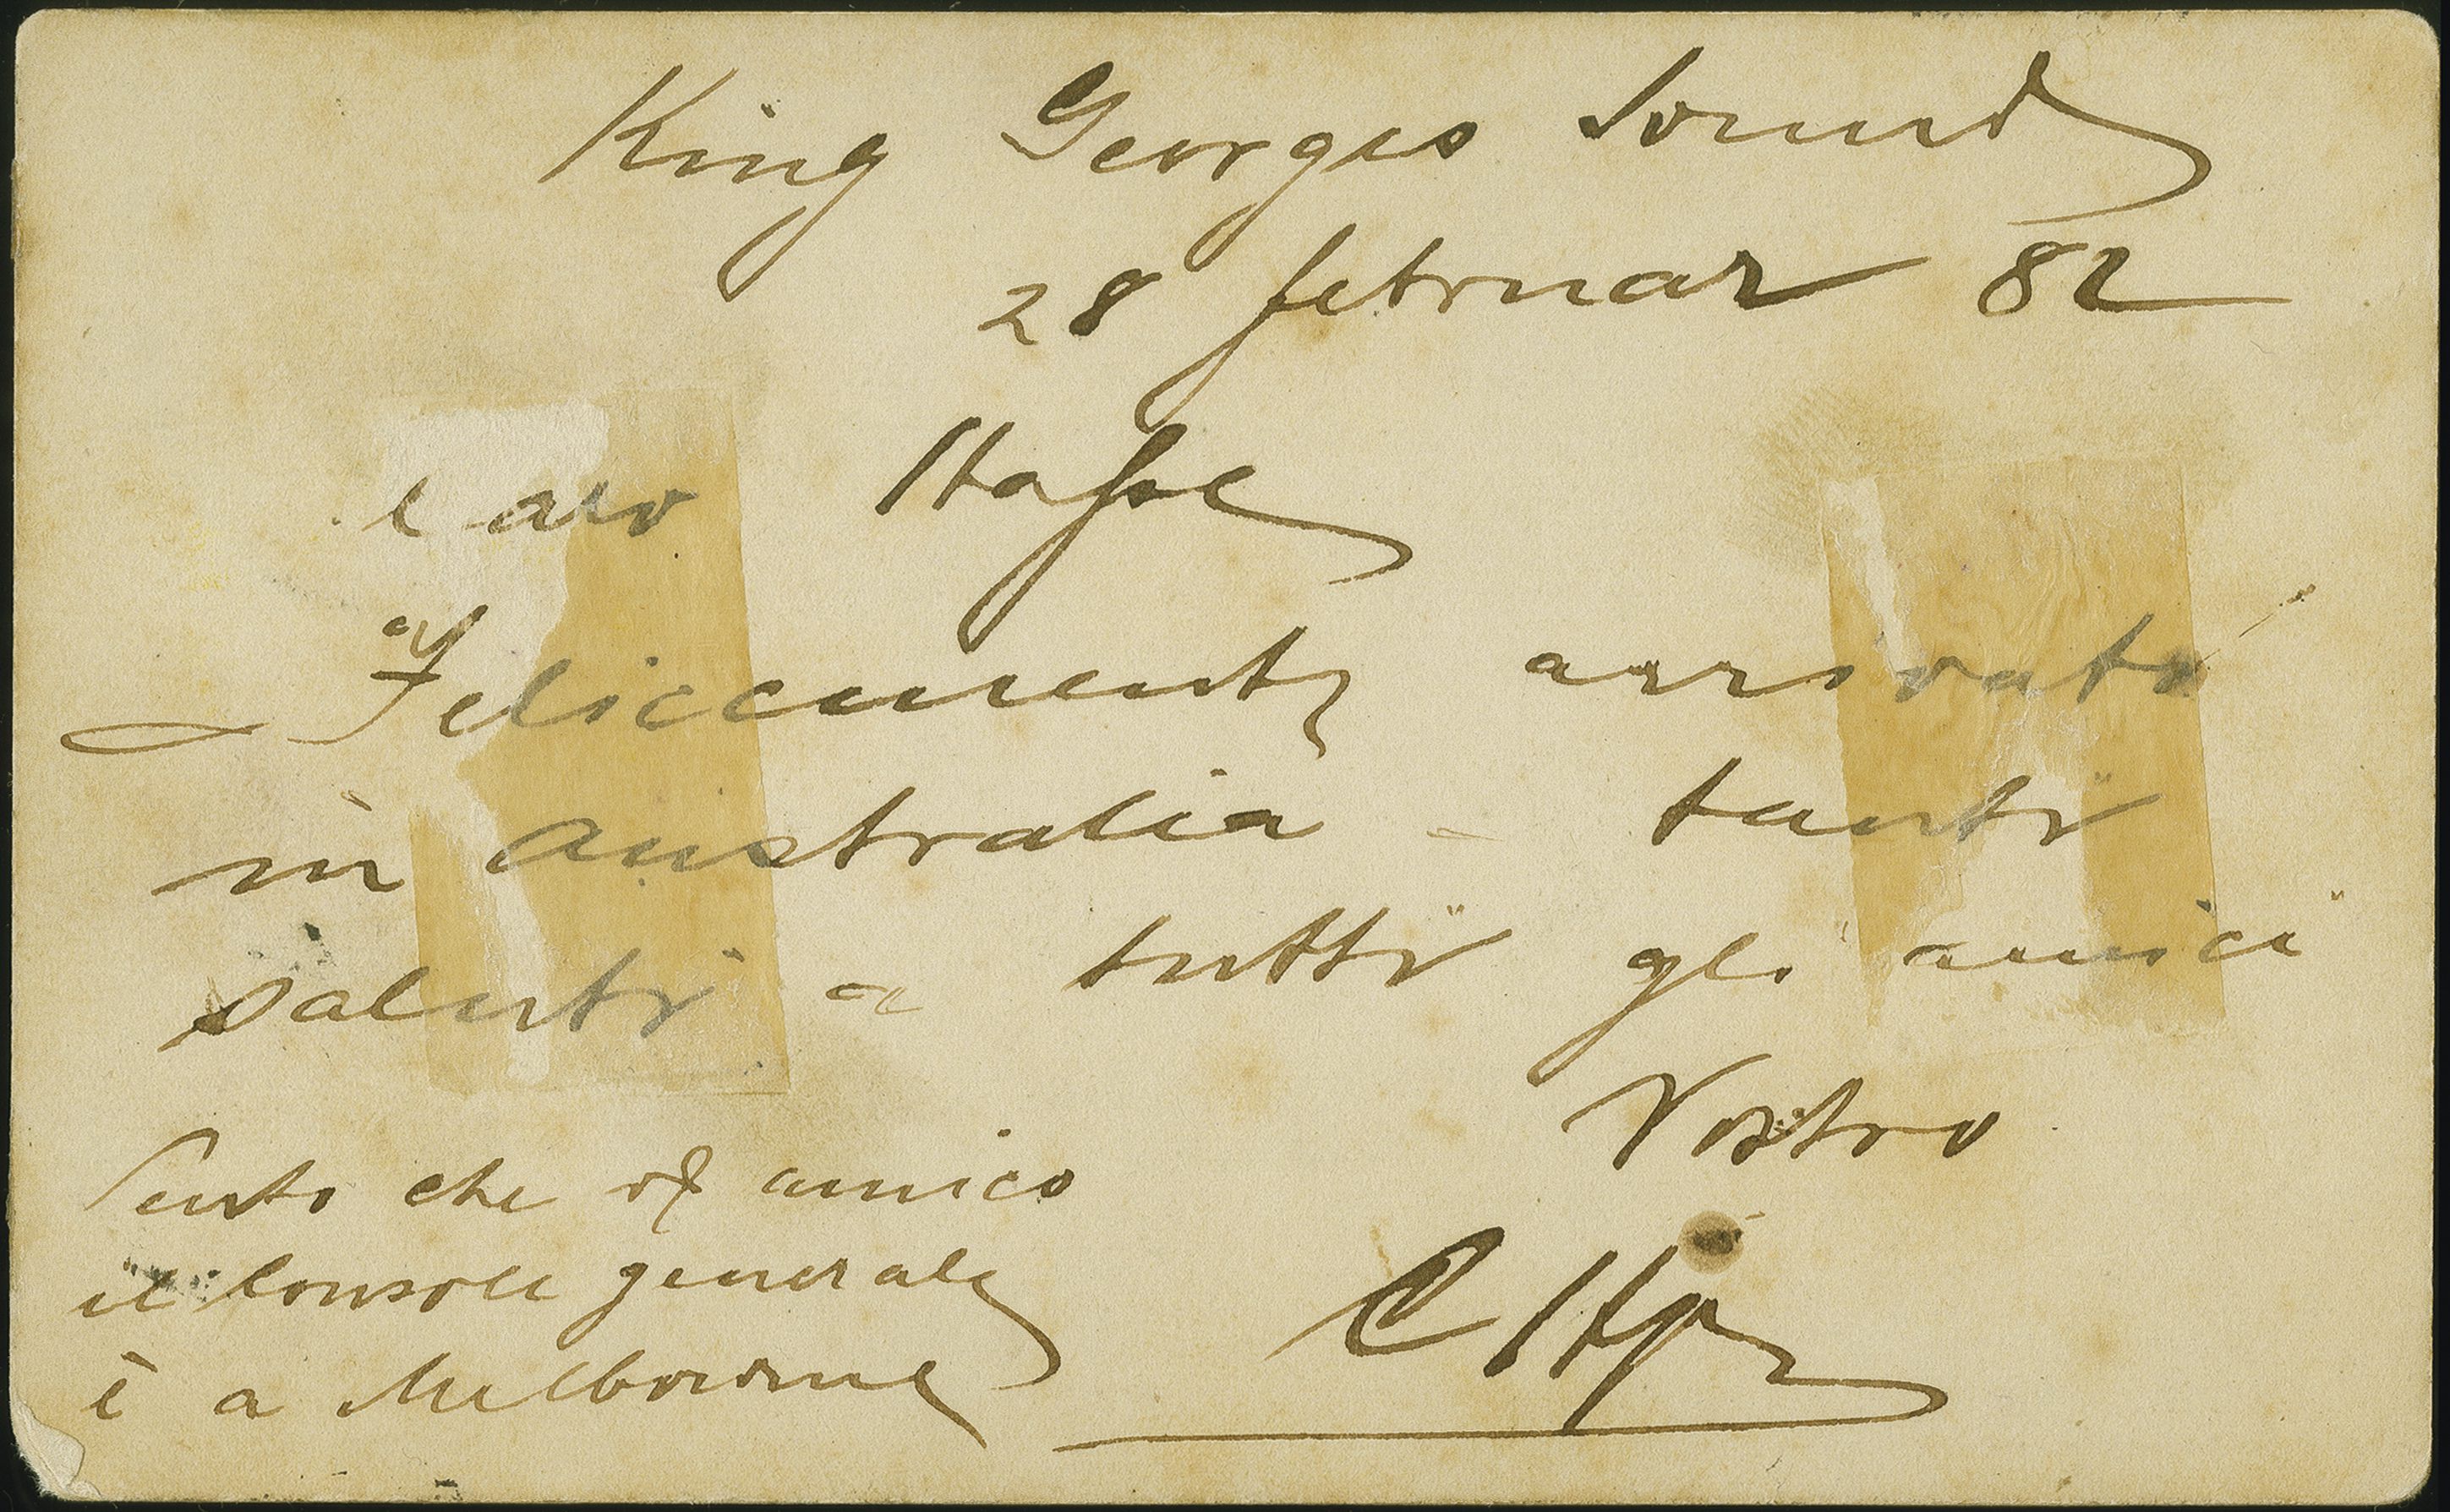 King Georges Sound
28 februar 82
Caro Hasse
Felicemente arrivati
in Australia - tanti
saluti a tutti gli amici
Vostro
Sento che amico
il Console generale
è a Melbourne